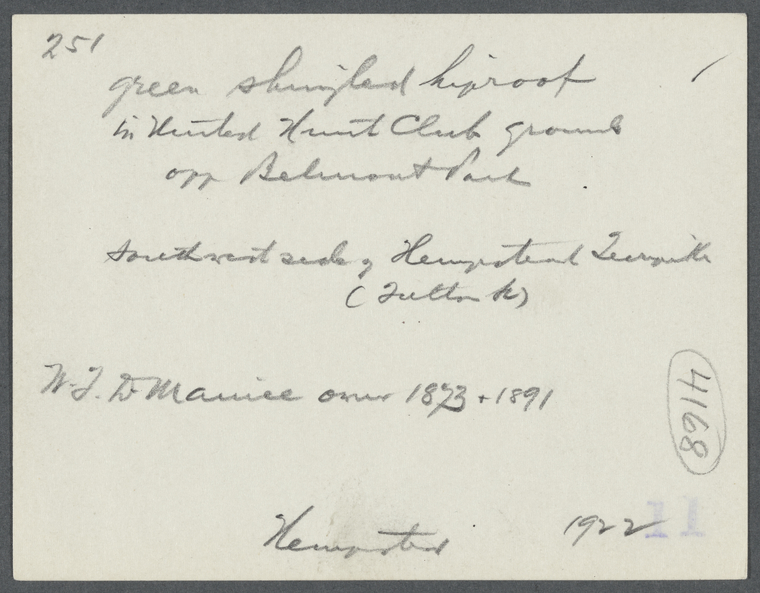 251
green shingled hiproof
in United Hunt Club grounds
opp Belmont Park
southwest side of Hempstead Turnpike
(Fulton St)
W. F. D. Manice owner 1873 + 1891
4168
Hempstead 1922
11